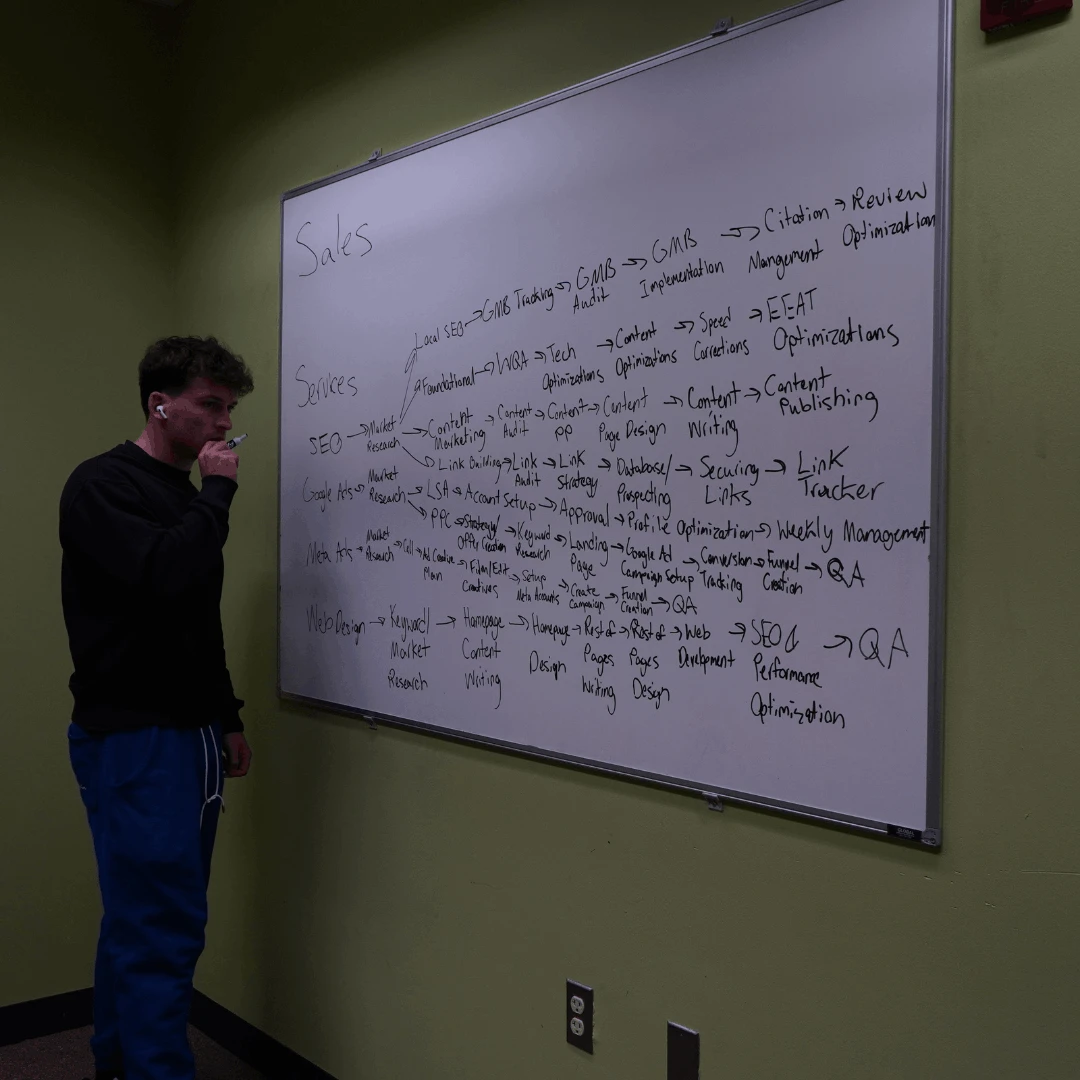 Sales
Local SEO → GMB Tracking → GMB Audit → GMB Implementation → Citation Mangement → Review Optimization
Services
Foundational → WQA → Tech Optimizations → Content Optimizations → Speed Corrections → EEAT Optimizations
SEO → Market Research → Content Marketing → Content Audit → Content PP → Content Page Design → Content Writing → Content Publishing
Link Building → Link Audit → Link Strategy → Database/ Prospecting → Securing Links → Link Tracker
Google Ads → Market Research → LSA → Account Setup → Approval → Profile Optimization → Weekly Management
PPC → Strategy/ Offer Creation → Keyword Research → Landing Page → Google Ad Campaign Setup → Conversion Tracking → Funnel Creation → QA
Meta Ads → Market Research → Call → Ad Creative Plan → Film/Edit Creatives → Setup Meta Accounts → Create Campaign → Funnel Creation → QA
Web Design → Keyword/ Market Research → Homepage Content Writing → Homepage Design → Rest of Pages Writing → Rest of Pages Design → Web Development → SEO & Performance Optimization → QA